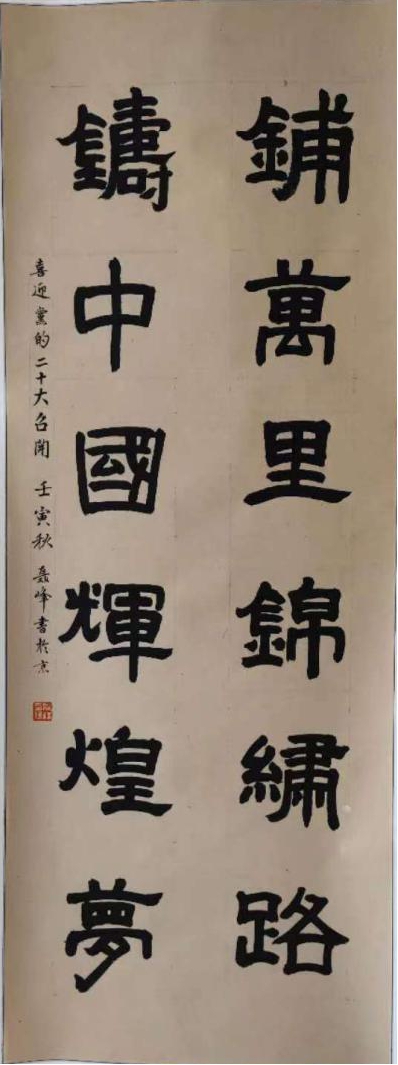 鋪萬里錦繡路
鑄中國輝煌夢
喜迎黨的二十大召開 壬寅秋 聶峰書於京